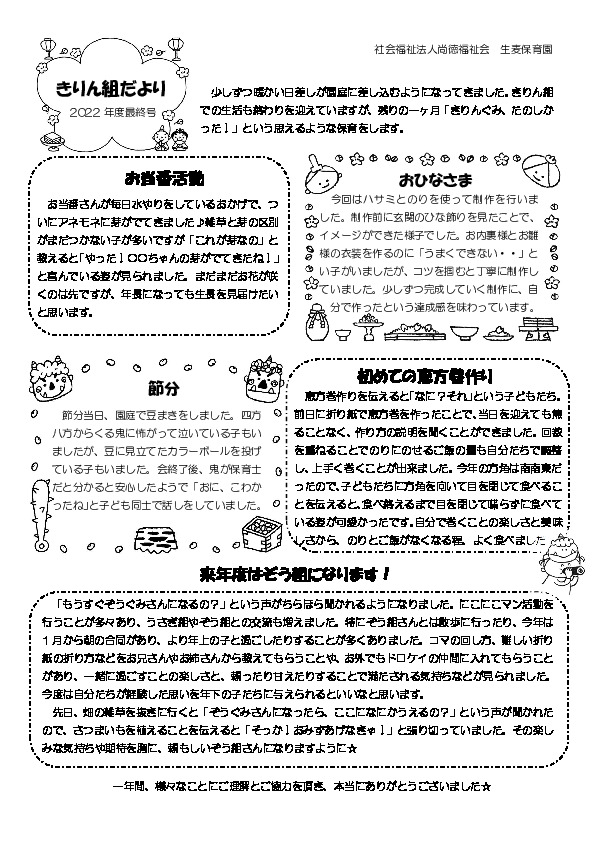 社会福祉法人尚徳福祉会　生麦保育園
きりん組だより
2022 年度最終号
少しずつ暖かい日差しが園庭に差し込むようになってきました。きりん組
での生活も終わりを迎えていますが、残りの一ヶ月「きりんぐみ、たのしか
った！」という思えるような保育をします。
お当番活動
お当番さんが毎日水やりをしているおかげで、つ
いにアネモネに芽がでてきました♪雑草と芽の区別
がまだつかない子が多いですが「これが芽なの」と
教えると「やった！〇〇ちゃんの芽がでてきたね！」
と喜んでいる姿が見られました。まだまだお花が咲
くのは先ですが、年長になっても生長を見届けたい
と思います。
おひなさま
今回はハサミとのりを使って制作を行いま
した。制作前に玄関のひな飾りを見たことで、
イメージができた様子でした。お内裏様とお雛
様の衣装を作るのに「うまくできない・・」と
いう子がいましたが、コツを掴むと丁寧に制作し
ていました。少しずつ完成していく制作に、自
分で作ったという達成感を味わっています。
節分
節分当日、園庭で豆まきをしました。四方
八方からくる鬼に怖がって泣いている子もい
ましたが、豆に見立てたカラーボールを投げ
ている子もいました。会終了後、鬼が保育士
だと分かると安心したようで「おに、こわか
ったね」と子ども同士で話しをしていました。
初めての恵方巻作り
恵方巻作りを伝えると「なに？それ」という子どもたち。
前日に折り紙で恵方巻を作ったことで、当日を迎えても焦
ることなく、作り方の説明を聞くことができました。回数
を重ねることでのりにのせるご飯の量も自分たちで調整
し、上手く巻くことが出来ました。今年の方角は南南東だ
ったので、子どもたちに方角を向いて目を閉じて食べるこ
とを伝えると、食べ終えるまで目を閉じて喋らずに食べて
いる姿が可愛かったです。自分で巻くことの楽しさと美味
しさから、のりとご飯がなくなる程、よく食べました
来年度はぞう組になります！
「もうすぐぞうぐみさんになるの？」という声がちらほら聞かれるようになりました。にこにこマン活動を
行うことが多々あり、うさぎ組やぞう組との交流も増えました。特にぞう組さんとは散歩に行ったり、今年は
１月から朝の合同があり、より年上の子と過ごしたりすることが多くありました。コマの回し方、難しい折り
紙の折り方などをお兄さんやお姉さんから教えてもらうことや、お外でもドロケイの仲間に入れてもらうこと
があり、一緒に過ごすことの楽しさと、頼ったり甘えたりすることで満たされる気持ちなどが見られました。
今度は自分たちが経験した思いを年下の子たちに与えられるといいなと思います。
先日、畑の雑草を抜きに行くと「ぞうぐみさんになったら、ここになにかうえるの？」という声が聞かれた
ので、さつまいもを植えることを伝えると「そっか！おみずあげなきゃ！」と張り切っていました。その楽し
みな気持ちや期待を胸に、頼もしいぞう組さんになりますように☆
一年間、様々なことにご理解とご協力を頂き、本当にありがとうございました☆